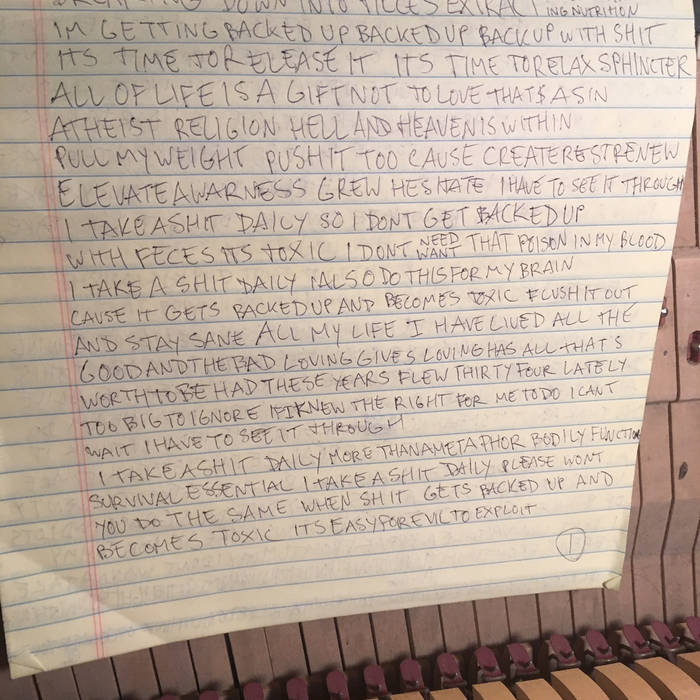 DOWN INTO PIECES EXTRACTING NUTRITION
IM GETTING BACKED UP BACKED UP BACKUP WITH SHIT
ITS TIME TO RELEASE IT ITS TIME TO RELAX SPHINCTER
ALL OF LIFE IS A GIFT NOT TO LOVE THATS A SIN
ATHEIST RELIGION HELL AND HEAVEN IS WITHIN
PULL MY WEIGHT PUSH IT TOO CAUSE CREATE REST RENEW
ELEVATE AWARNESS GREW HESITATE I HAVE TO SEE IT THROUGH
I TAKE A SHIT DAILY SO I DONT GET BACKED UP
WITH FECES ITS TOXIC I DONT NEED WANT THAT POISON IN MY BLOOD
I TAKE A SHIT DAILY I ALSO DO THIS FOR MY BRAIN
CAUSE IT GETS BACKED UP AND BECOMES TOXIC FLUSH IT OUT
AND STAY SANE ALL MY LIFE I HAVE LIVED ALL THE
GOOD AND THE BAD LOVING GIVES LOVING HAS ALL THATS
WORTH TO BE HAD THESE YEARS FLEW THIRTY FOUR LATELY
TOO BIG TO IGNORE IF I KNEW THE RIGHT FOR ME TO DO I CANT
WAIT I HAVE TO SEE IT THROUGH
I TAKE A SHIT DAILY MORE THAN A METAPHOR BODILY FUNCTION
SURVIVAL ESSENTIAL I TAKE A SHIT DAILY PLEASE WONT
YOU DO THE SAME WHEN SHIT GETS BACKED UP AND
BECOMES TOXIC ITS EASY FOR EVIL TO EXPLOIT
1